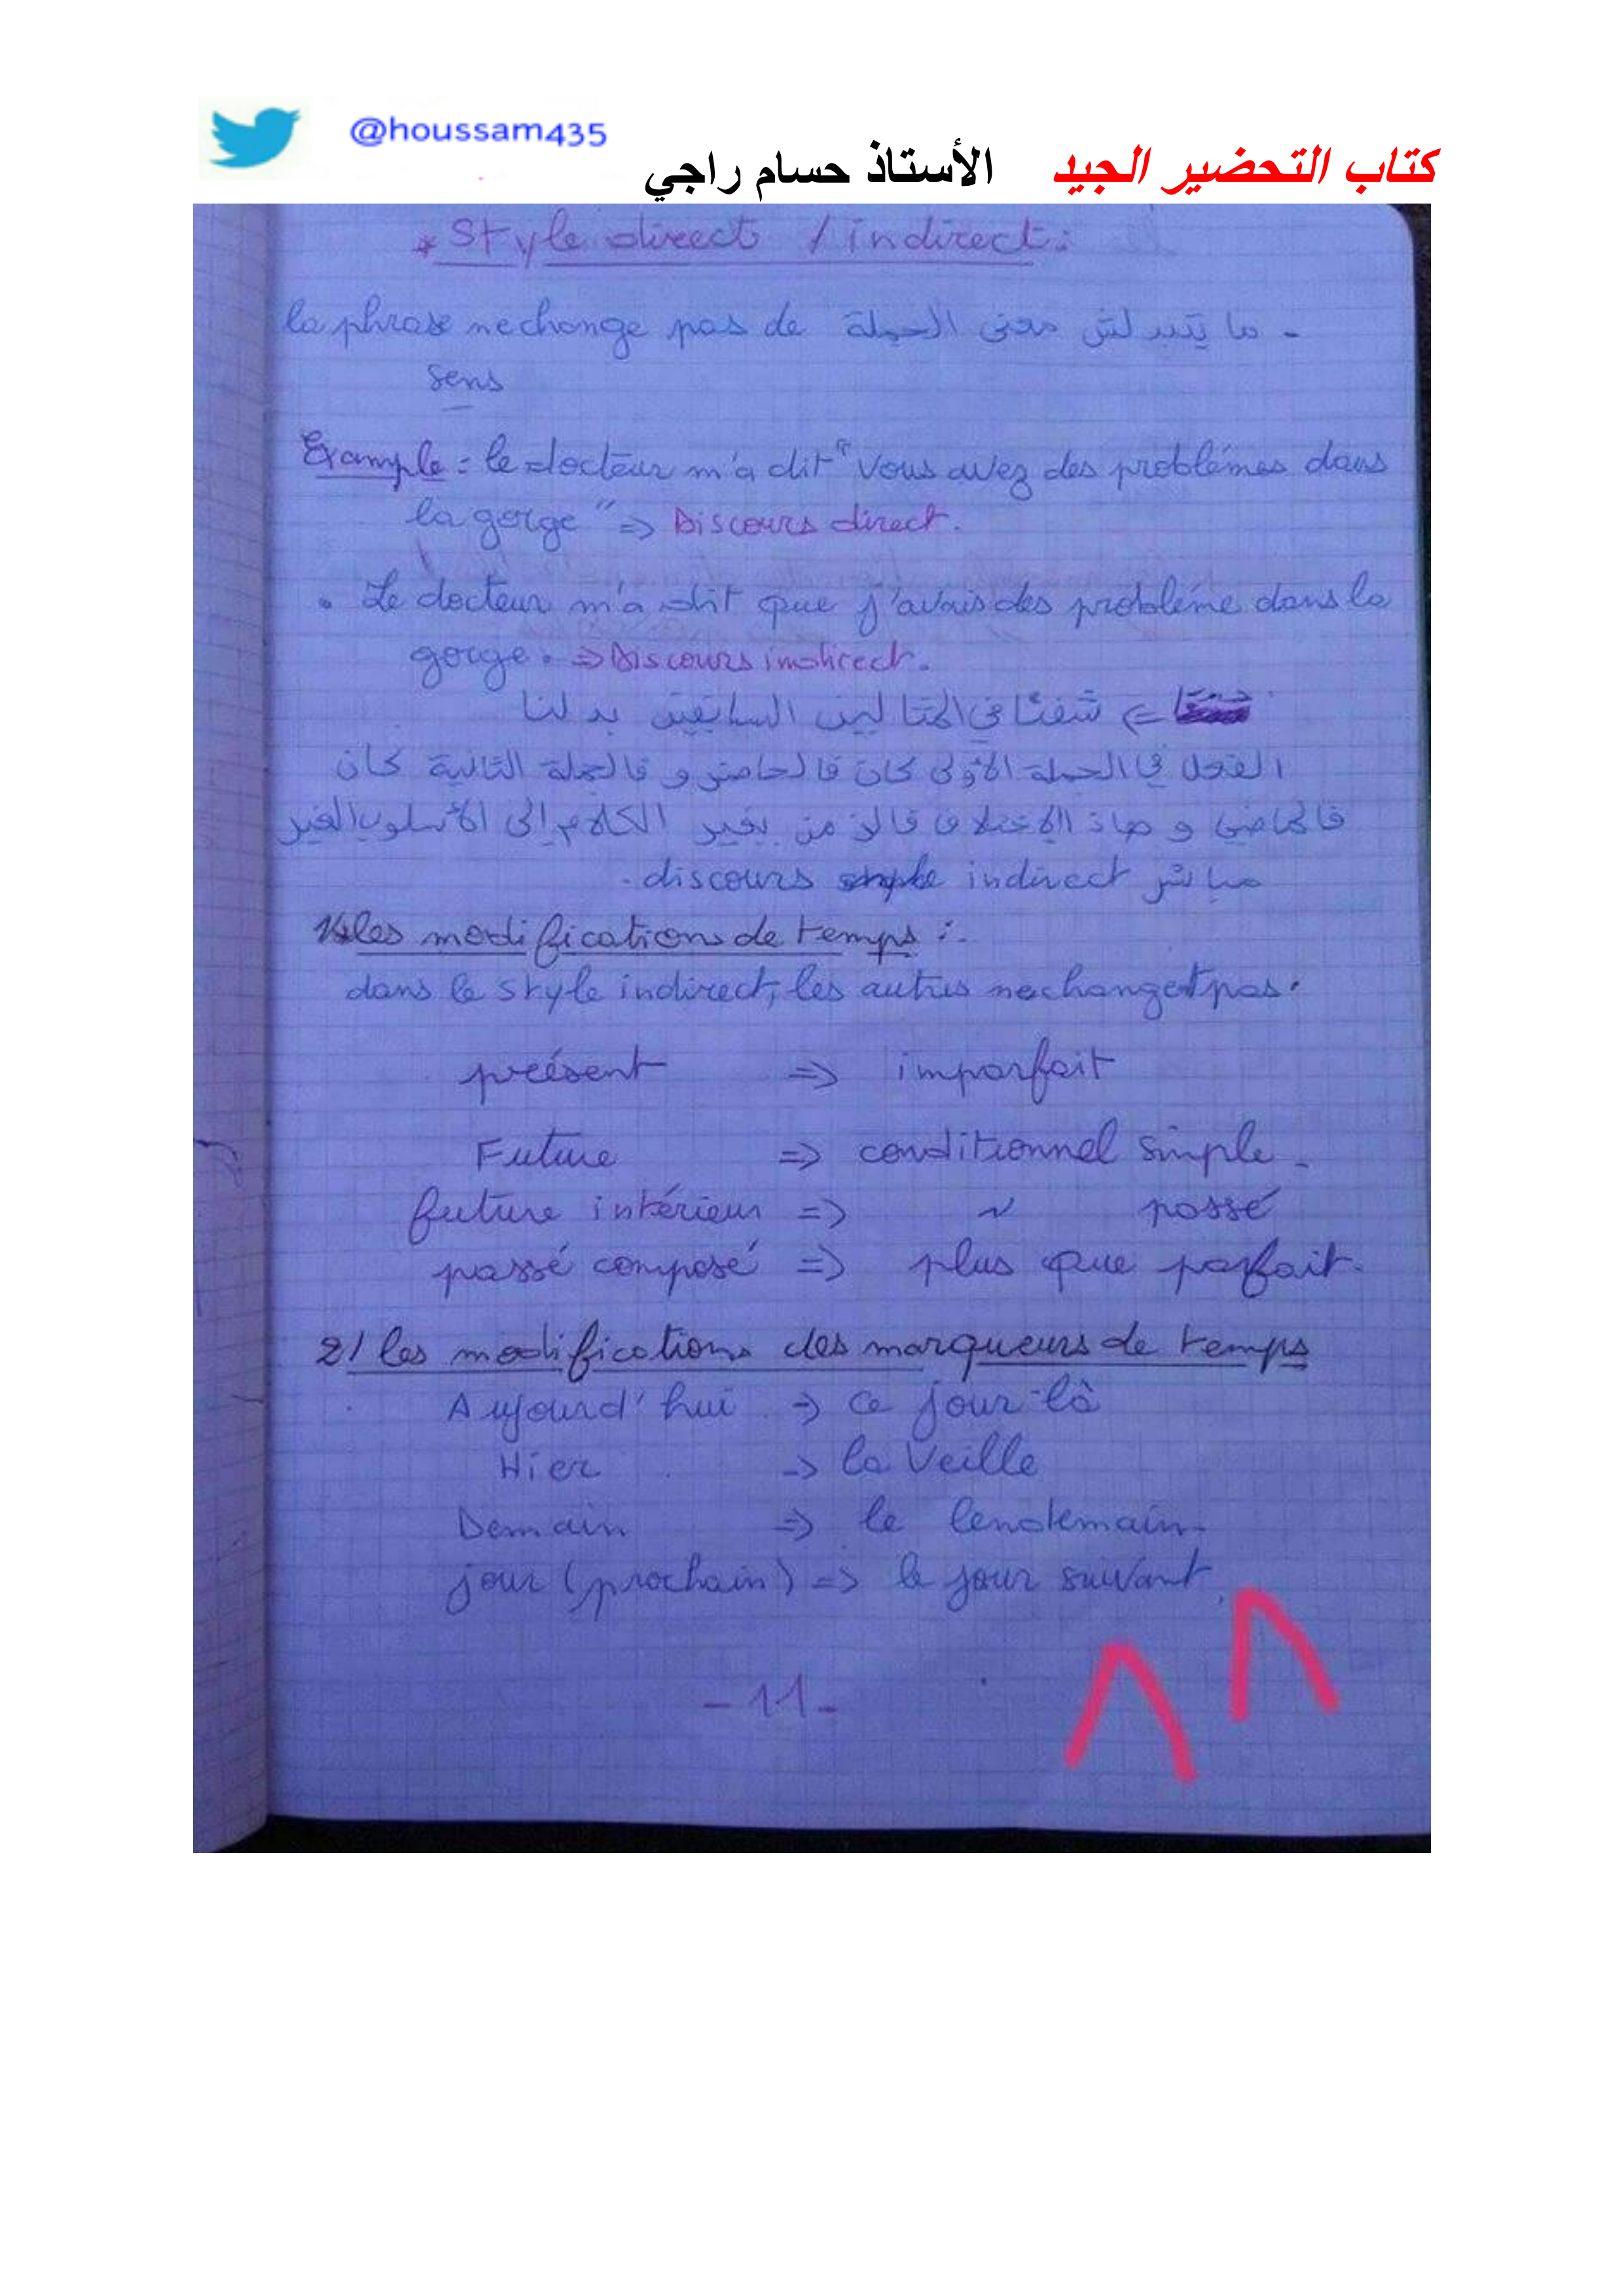 @houssam435
كتاب التحضير الجيد الأستاذ حسام راجي
* Style direct / indirect :
- ما يتبدلش معنى الجملة la phrase ne change pas de
sens
Example : le docteur m'a dit " vous avez des problémes dans
la gorge " => Discours direct.
• Le docteur m'a dit que j'avais des probléme dans la
gorge. => Discours indirect.
=> شفنا في المثالين السابقين بدلنا
الفعل في الجملة الأولى كان فالحاضر و فالجملة الثانية كان
فالماضي و هاذ الاختلاف من يغير الكلام إلى الأسلوب الغير
مباشر discours indirect.
1/ les modifications de temps :.
dans le style indirect, les autres ne changent pas.
présent => imparfait
Future => conditionnel simple -
future intérieur => ~ passé
passé composé => plus que parfait.
2/ les modifications des marqueurs de temps
Aujourd'hui => ce jour-là
Hier -> la Veille
Demain => le lendemain-
jour (prochain) => le jour suivant.
-11-